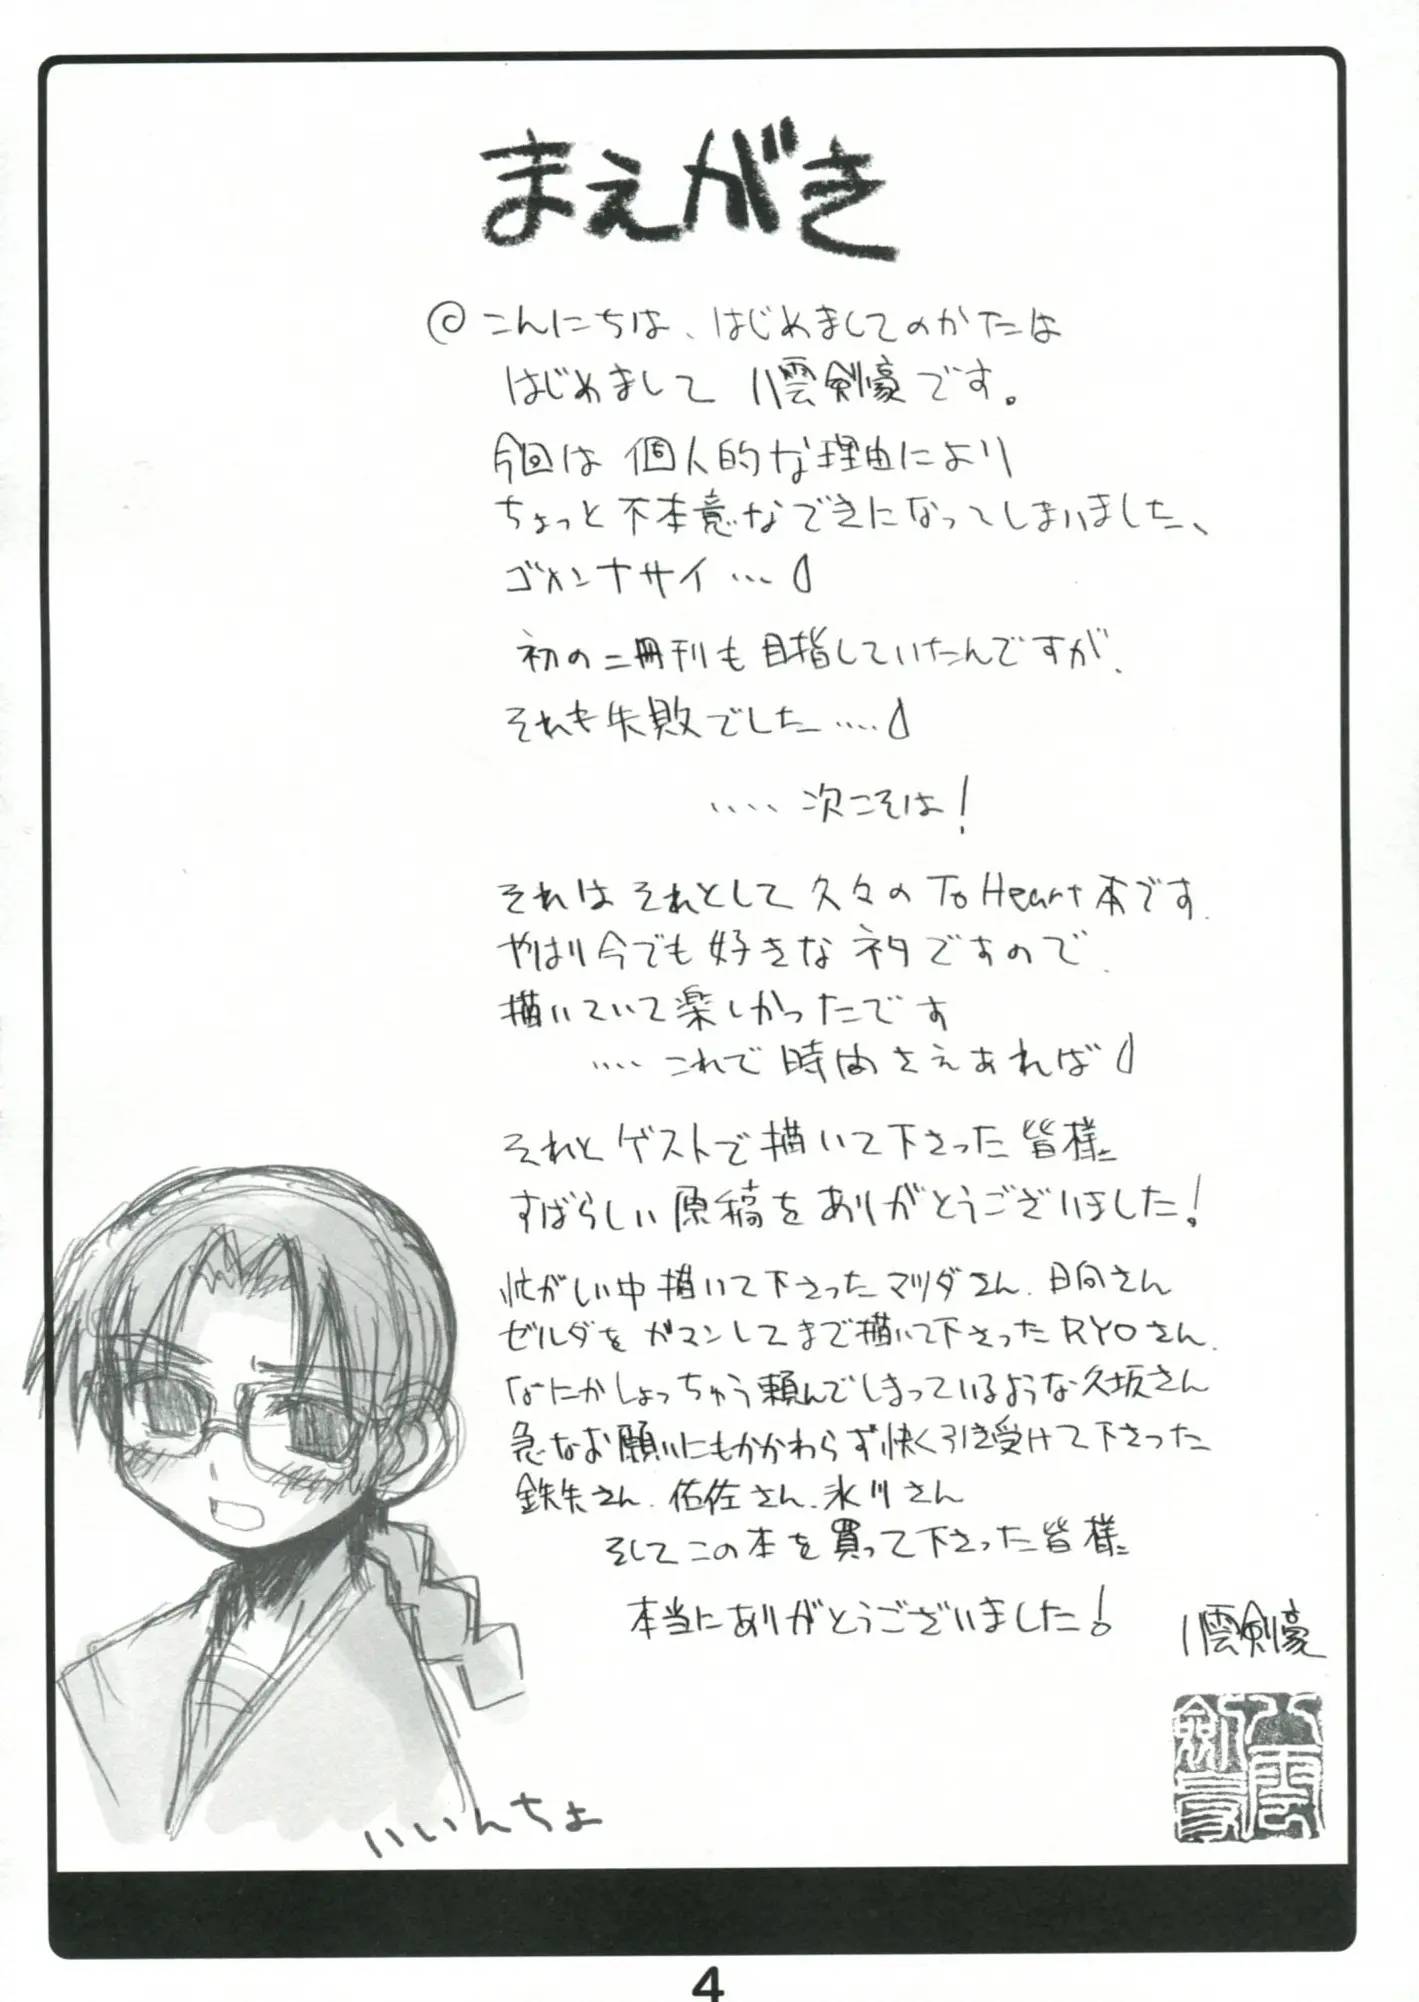 まえがき
@こんにちは、はじめましてのかたは
はじめまして 八雲剣豪です。
今回は 個人的な理由により
ちょっと不本意なできになってしまいました、
ゴメンナサイ…
初の二冊刊も目指していたんですが、
それも失敗でした‥‥
‥‥次こそは!
それはそれとして久々のTo Heart本です。
やはり今でも好きなネタですので、
描いていて楽しかったです
‥‥これで時間さえあれば
それとゲストで描いて下さった皆様
すばらしい原稿をありがとうございました!
忙がしい中描いて下さったマツダさん、日向さん
ゼルダをガマンしてまで描いて下さったRYOさん、
なにかしょっちゅう頼んでしまっているような久坂さん
急なお願いにもかかわらず快く引き受けて下さった
鉄矢さん、佑佐さん、氷川さん
そしてこの本を買って下さった皆様
本当にありがとうございました!
八雲剣豪
八雲剣豪
いいんちょ
4